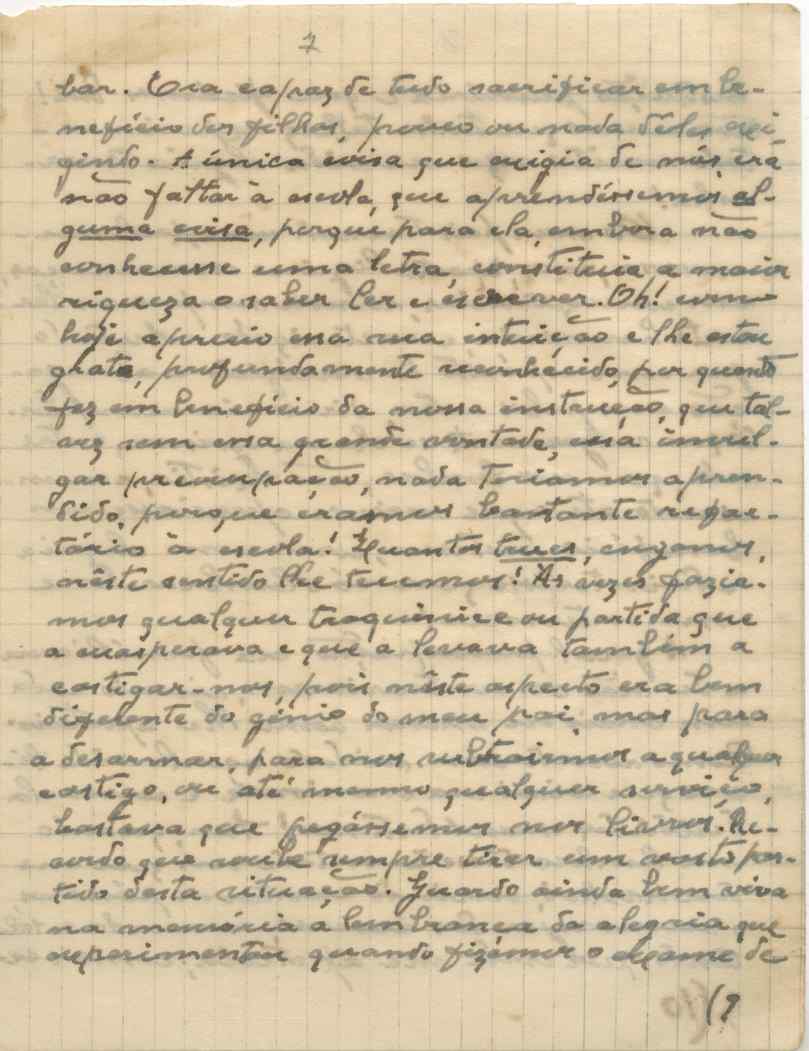 7
bar. Era capaz de tudo sacrificar em be-
nefício dos filhos, pouco ou nada dêles exi
gindo. A única coisa que exigia de nós era
não faltar à escola, que aprendêssemos al-
guma coisa, porque para ela, embora não
conhecesse uma letra, constituia a maior
riqueza o saber ler e escrever. Oh! como
hoje aprecio essa sua intuição e lhe estou
grato, profundamente reconhecido, por quanto
fez em benefício da nossa instrução, que tal-
vez sem essa grande vontade, essa invul-
gar preocupação, nada teriamos apren-
dido, porque éramos bastante refrac-
tário à escola! Quantos truces, enganos,
nêste sentido lhe tecemos! Às vezes fazia-
mos qualquer traquinice ou partida que
a exasperava e que a levava também a
castigar-nos, pois nêste aspecto era bem
diferente do génio do meu pai, mas para
a desarmar, para nos subtrairmos a qualquer
castigo, ou até mesmo qualquer serviço,
bastava que pegássemos nos livros. Re-
cordo que soube sempre tirar um vasto par-
tido desta situação. Guardo ainda bem viva
na memória a lembrança da alegria que
experimentou quando fizémos o exame de
(9